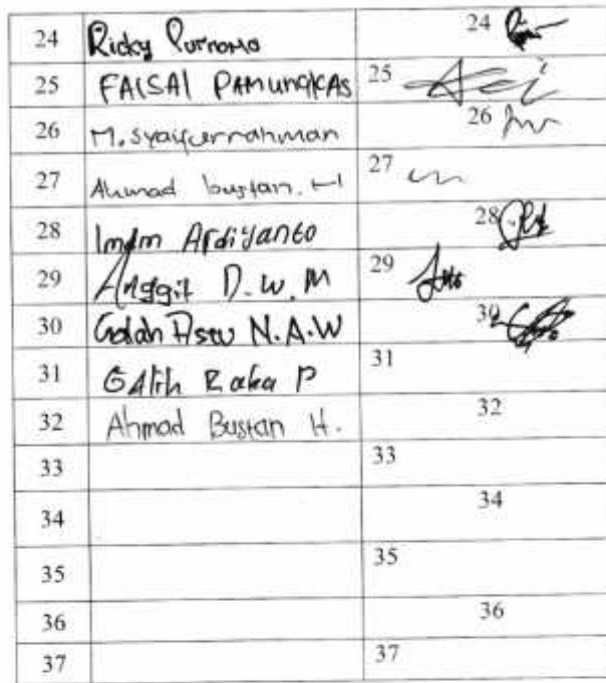 24 Ricky Purnomo 24
25 FAISAl PAMUngKAS 25
26 M. syaifurrahman 26
27 Ahmad bustan. H 27
28 Imam Ardiyanto 28
29 Anggit D. W. M 29
30 Galah N.A.W 30
31 GAlih Raka P 31
32 Ahmad Bustan H. 32
33 33
34 34
35 35
36 36
37 37